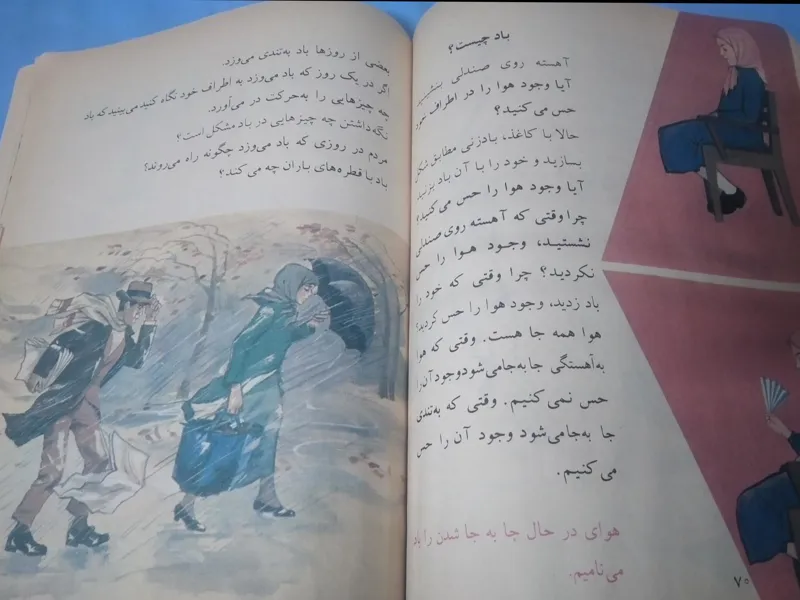 باد چیست؟
آهسته روی صندلی بنشینید
آیا وجود هوا را در اطراف خود
حس می‌کنید؟
حالا با کاغذ، بادزنی مطابق شکل
بسازید و خود را با آن باد بزنید
آیا وجود هوا را حس می‌کنید؟
چرا وقتی که آهسته روی صندلی
نشستید، وجود هوا را حس
نکردید؟ چرا وقتی که خود را
باد زدید، وجود هوا را حس کردید؟
هوا همه جا هست. وقتی که هوا
به‌آهستگی جا‌به‌جا می‌شود وجود آن را
حس نمی‌کنیم. وقتی که به‌تندی
جا به‌جا می‌شود وجود آن را حس
می‌کنیم.
هوای در حال جا به جا شدن را باد
می‌نامیم.
۷۰
بعضی از روزها باد به‌تندی می‌وزد.
اگر در یک روز که باد می‌وزد به اطراف خود نگاه کنید می‌بینید که باد
چه چیزهایی را به‌حرکت در می‌آورد.
نگه‌داشتن چه چیزهایی در باد مشکل است؟
مردم در روزی که باد می‌وزد چگونه راه می‌روند؟
باد با قطره‌های باران چه می‌کند؟